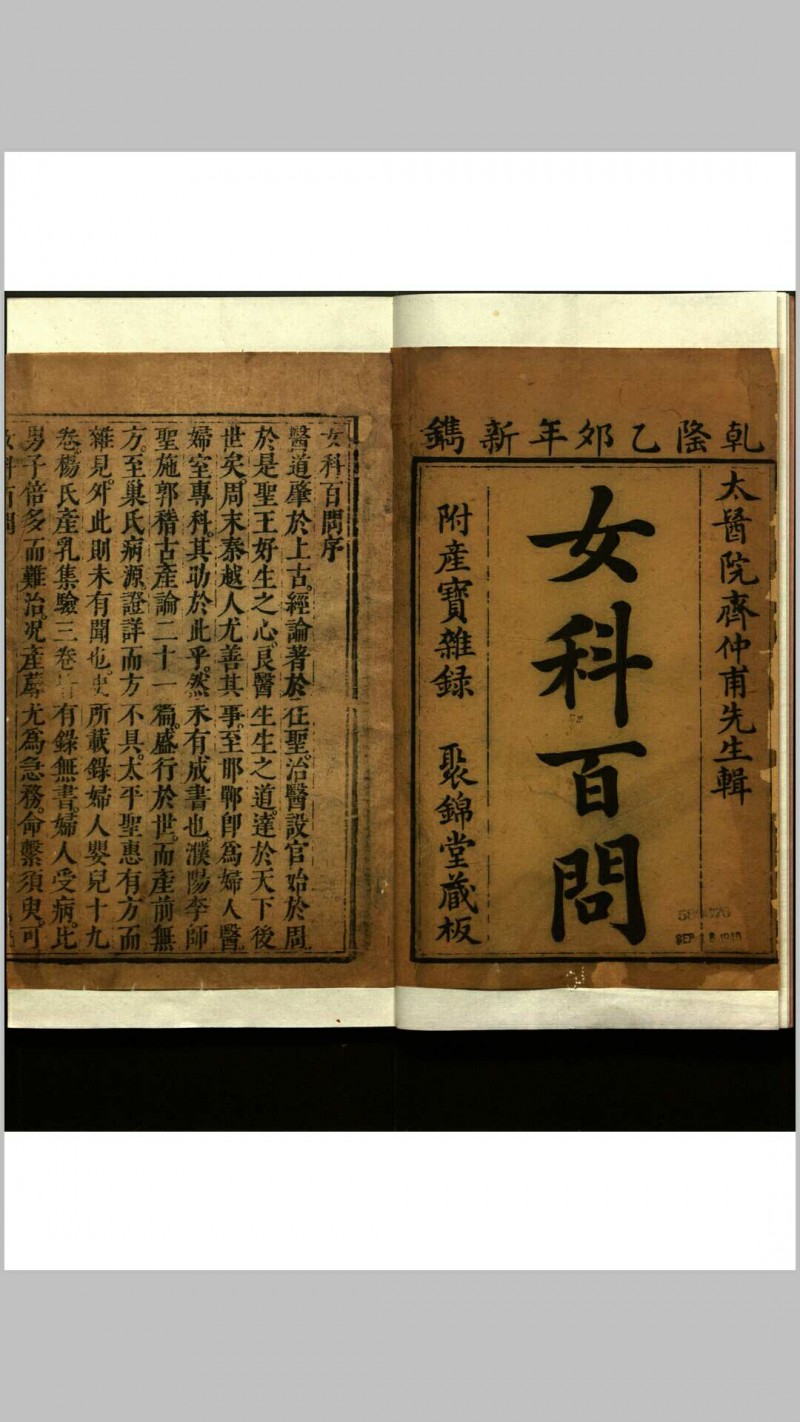 乾隆乙夘年新鐫
太醫院齊仲甫先生輯
女科百問
附產寶雜録　聚錦堂藏板
SEP 1940
女科百問序
醫道肇於上古。經論著於往聖。治醫設官始於周
於是聖王好生之心。良醫生生之道。達於天下後
世矣。周末秦越人尤善其事。至邯鄲卽爲婦人醫
婦室專科。其助於此乎。然未有成書也。濮陽李師
聖施郭稽古產論二十一篇。盛行於世。而產前無
方。至巢氏病源。證詳而方不具。太平聖惠有方而
雜見。外此則未有聞也。史所載錄婦人嬰兒十九
卷。楊氏產乳集驗三卷皆有錄無書。婦人受病。比
男子倍多而難治。况產蓐尤爲急務。命繫須臾。可
女科百問